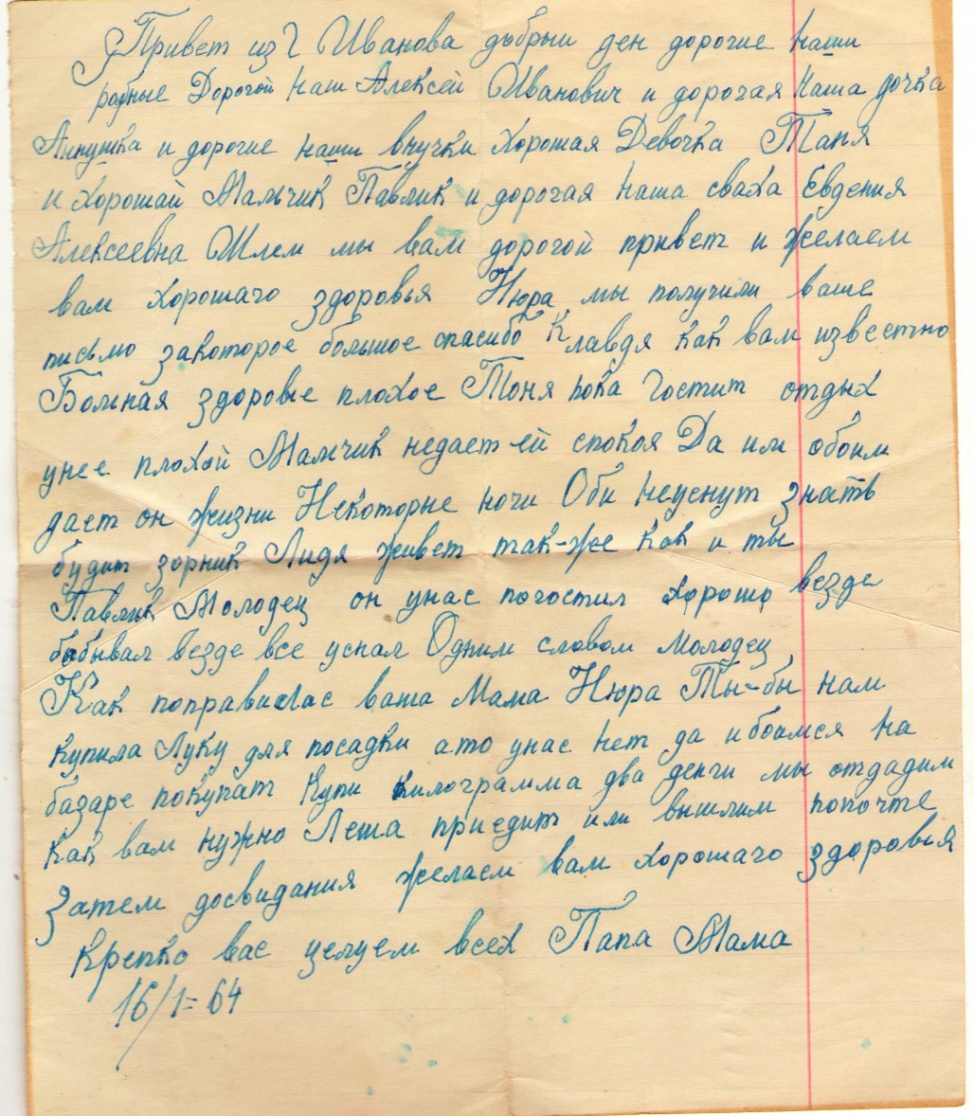 Привет из г Иванова дъбрыи ден дорогие наши
родные Дорогой Наш Алексей Иванович и дорогая Наша дочка
Аннушка и дорогие наши внучки Хорошая Девочка Таня
и Хорошай Мальчик Павлик и дорогая Наша сваха Евдения
Алексеевна Шлем мы вам дорогой привет и желаем
вам Хорошаго здоровья Нюра мы получили ваше
письмо закоторое большое спасибо Клавдя как вам известно
Больная здоровье плохое Тоня пока гостит отдых
унее плохой Мальчик недает ей спокоя Да им обоим
дает он жизни Некоторые ночи Оби неуснут знать
будит зорник Лидя живет так-же как и ты
Павлик Молодец он унас погостил хорошо везде
бобывал везде все уснал Одним словом молодец
Как поправилас ваша Мама Нюра Ты-бы нам
купила Луку для посадки ато унас нет да ибоимся на
базаре покупат Купи килограмма два денги мы отдадим
как вам нужно Леша приедит или вышлим попочте
Затем досвидания желаем вам хорошаго здоровья
Крепко вас целуем всех Папа Мама
16/1=64